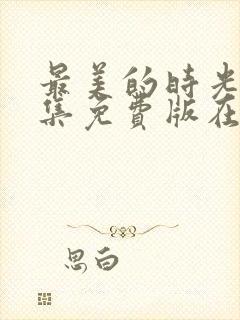 最美的时光
集免费版在
思白